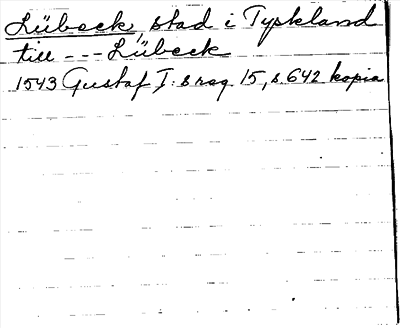 Lübeck, stad i Tyskland
till --- Lübeck
1543 Gustaf I:s reg. 15, s. 642 kopia